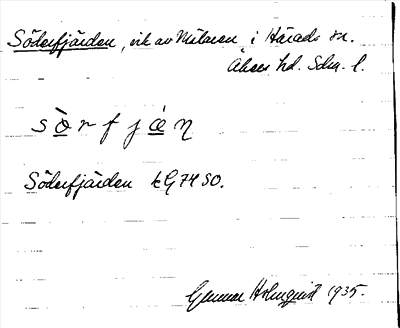 Söderfjärden, vik av Mälaren i Härads sn.
Åkers hd. Sdm. l.
sò̱rfjæ̱̀η
Söderfjärden kG 74 SO.
Gunnar Holmquist 1935.